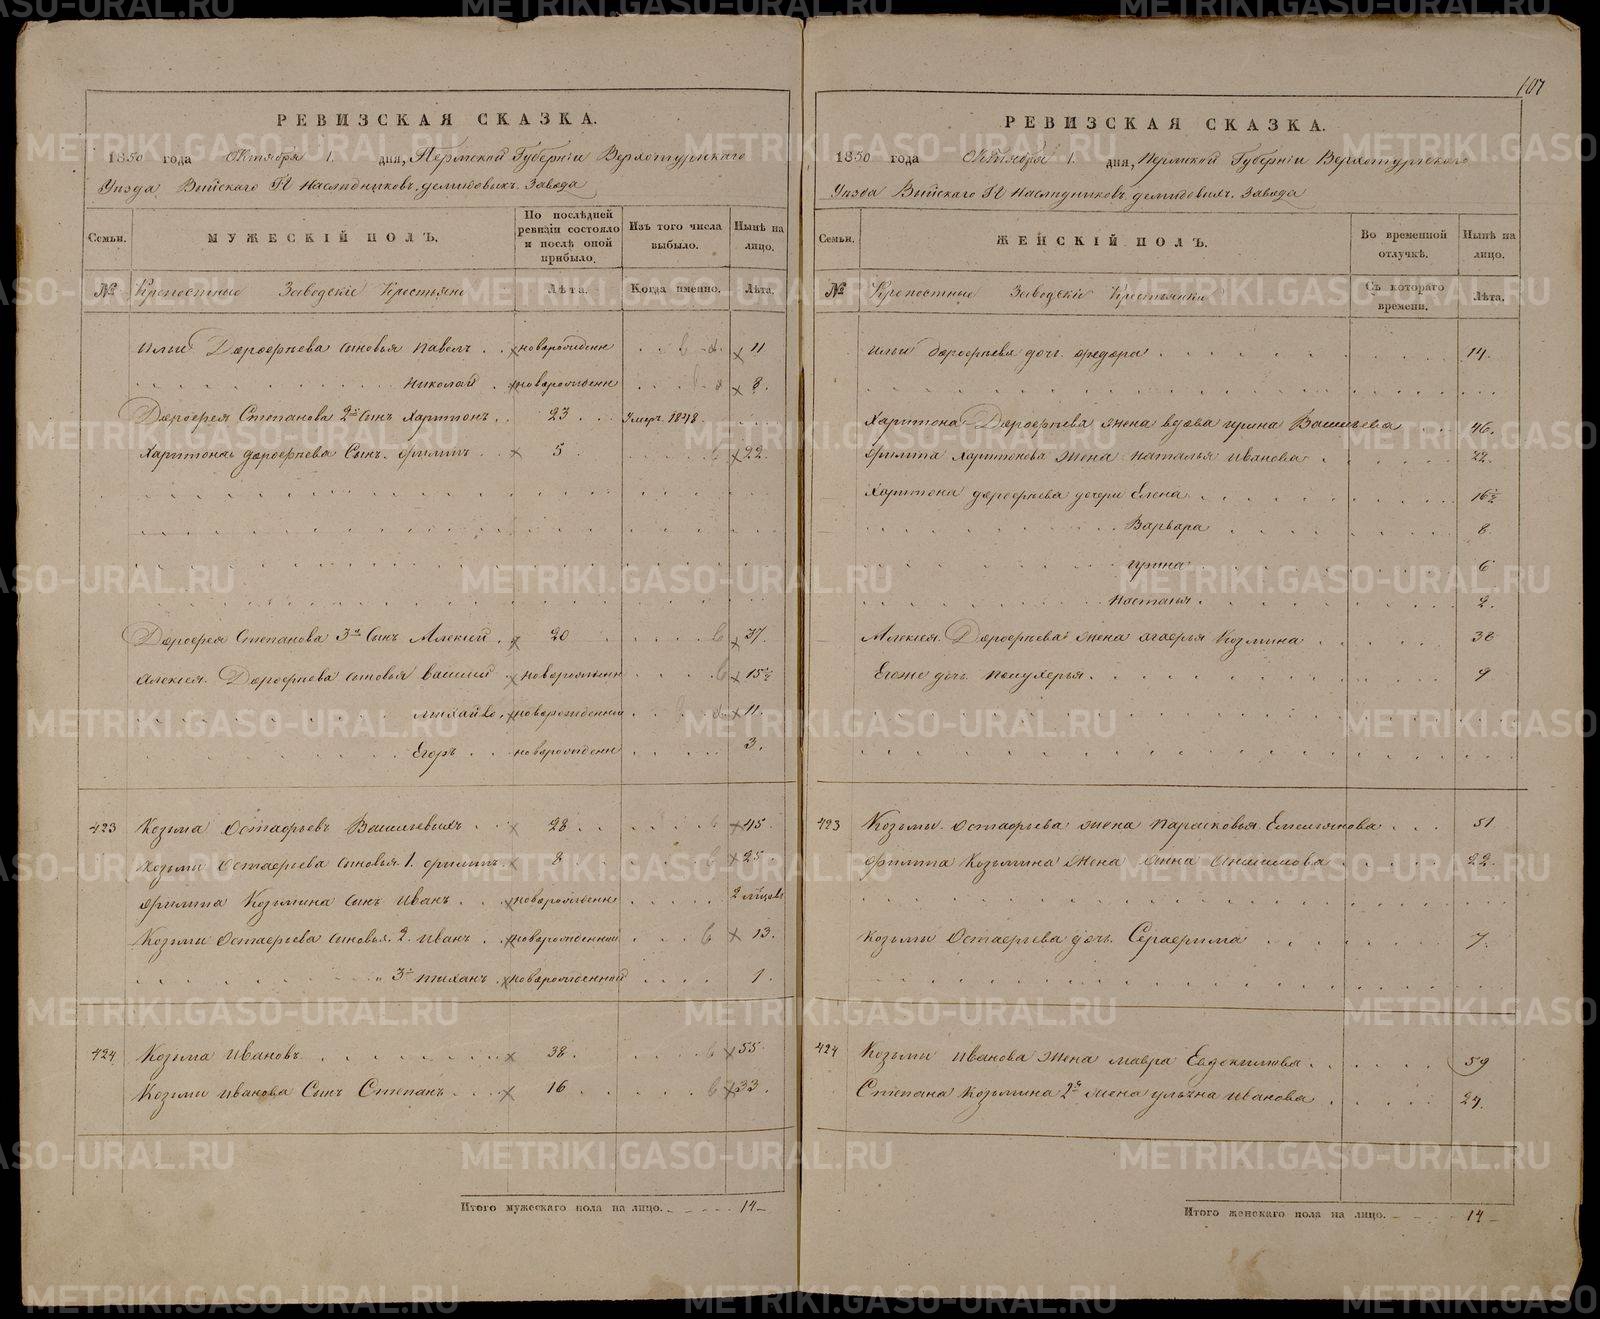 107
РЕВИЗСКАЯ СКАЗКА.
1850 года Октября 1. дня, Пермской Губерніи Верхотурскаго
Уѣзда Выйскаго Гг Наслѣдниковъ Демидовыхъ Завода
Семьи.
МУЖЕСКІЙ ПОЛЪ.
По послѣдней ревизіи состояло и послѣ оной прибыло.
Изъ того числа выбыло.
Нынѣ на лицо.
№ Крепостные Заводскіе Крестьяне Лѣта. Когда именно. Лѣта.
Ильи Дорофеева сыновья Павелъ новорожден 11
Николай новорожден 8.
Дорофея Степанова 2й сынъ Харитонъ 23 Умеръ 1848.
Харитона Дорофеева Сынъ Филипъ 5 22.
Дорофея Степанова 3й Сынъ Алексей 20 37.
Алексея Дорофеева сыновья Василий новорожден 15½
Михайло новорожденный 11.
Егоръ новорожден 3.
423 Козьма Остафьевъ Васильевыхъ 28 45.
Козьмы Остафьева сыновья 1. Филипъ 8 25
Филипа Козьмина сынъ Иванъ новорожден 2 мѣсяца
Козьмы Остафьева сыновья 2. Иванъ новорожденный 13.
3й Тиханъ новорожденный 1.
424 Козьма Ивановъ 38. 55
Козьмы Иванова Сынъ Степанъ 16 33.
Итого мужескаго пола на лицо. 14
РЕВИЗСКАЯ СКАЗКА.
1850 года Октября 1. дня, Пермской Губерніи Верхотурскаго
Уѣзда Выйскаго Гг Наслѣдниковъ Демидовыхъ Завода
Семьи.
ЖЕНСКІЙ ПОЛЪ.
Во временной отлучкѣ.
Нынѣ на лицо.
№ Крепостные Заводскіе Крестьянки Съ котораго времени. Лѣта.
Ильи Дорофеева дочь Федора 14.
Харитона Дорофеева жена вдова Ирина Васильева 46.
Филипа Харитонова жена Наталья Иванова 22.
Харитона Дорофеева дочери Елена 16½
Варвара 8
Ирина 6
Настасья 2.
Алексея Дорофеева жена Агафья Козмина 38
Егоже дочь Полухерья 9
423 Козьмы Остафьева жена Парасковья Емельянова 51
Филипа Козьмина жена Анна Анисимова 22.
Козьмы Остафьева дочь Серафима 7.
424 Козьмы Иванова жена Мавра Евдокимова 59
Степана Козьмина 2я жена Ульяна Иванова 24.
Итого женскаго пола на лицо. 14
METRIKI.GASO-URAL.RU